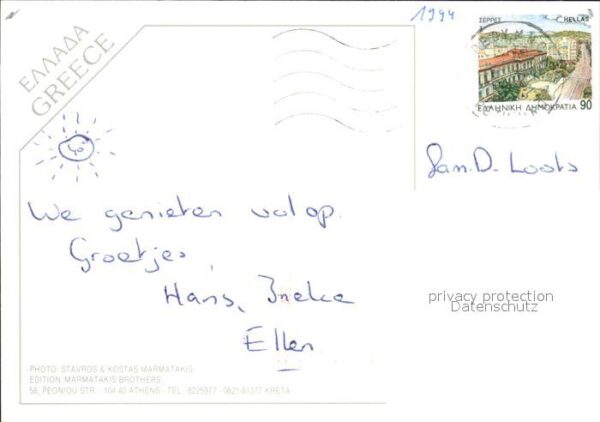 1994
ΣΕΡΡΕΣ HELLAS
90
ΕΛΛΗΝΙΚΗ ΔΗΜΟΚΡΑΤΙΑ
ΕΛΛΑΔΑ
GREECE
Fam. D. Loots
We genieten volop.
Groetjes,
Hans, Ineke
Ellen
privacy protection
Datenschutz
PHOTO: STAVROS & KOSTAS MARMATAKIS
EDITION: MARMATAKIS BROTHERS
58, PEONIOU STR. - 104 40 ATHENS - TEL.: 8225977 - 0821-61377 KRETA